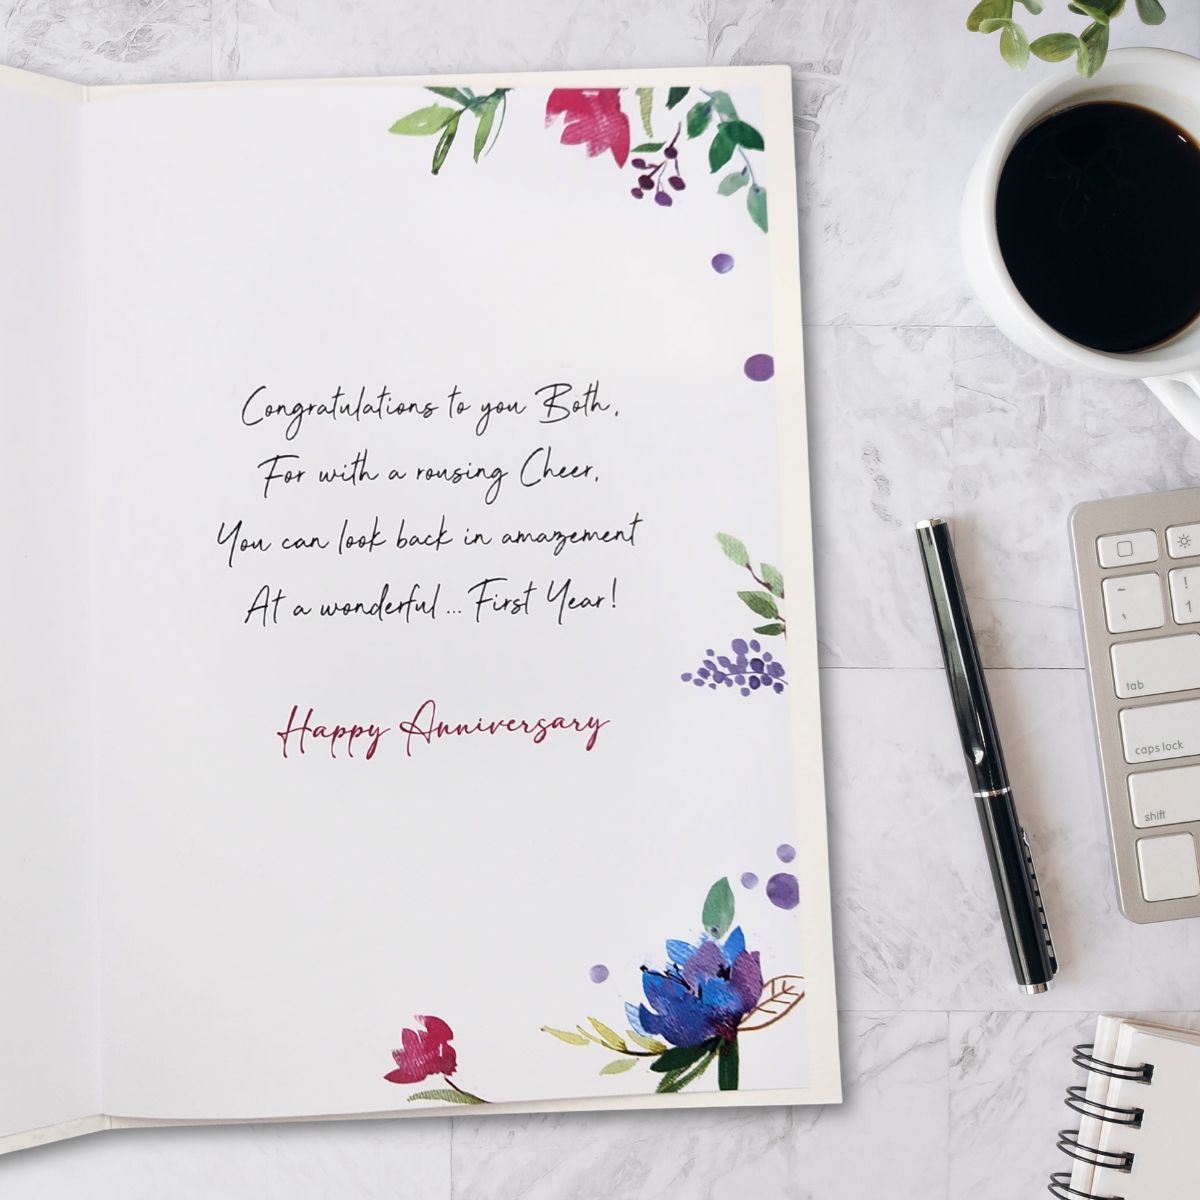 Congratulations to you Both,
For with a rousing Cheer,
You can look back in amazement
At a wonderful ... First Year!
Happy Anniversary
~
`
!
1
tab
caps lock
shift